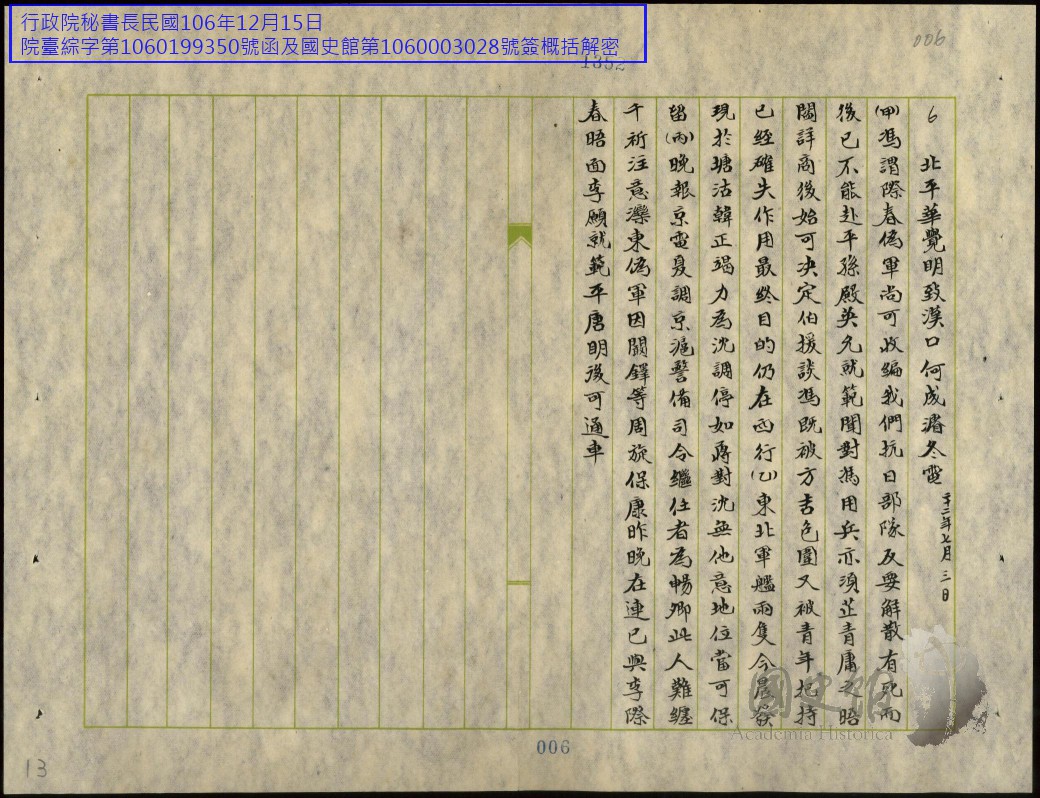 行政院秘書長民國106年12月15日
院臺綜字第1060199350號函及國史館第1060003028號簽概括解密
006
1352
6 北平華覺明致漢口何成濬冬電 二十二年七月三日
(甲)馮謂際春偽軍尚可收編我們抗日部隊反要解散有死而
後已不能赴平孫殿英允就範聞對馮用兵亦須芷青庸之晤
閻詳商後始可決定伯援談馮既被方吉包圍又被青年把持
已經確失作用最終目的仍在西行(乙)東北軍艦兩隻今晨發
現於塘沽韓正竭力為沈調停如蔣對沈無他意地位當可保
留(丙)晚報京電夏調京滬警備司令繼任者為暢卿此人難纏
千祈注意灤東偽軍因關鐸等周旋保康昨晚在連已與李際
春晤面李願就範平唐明後可通車
國史館
Academia Historica
006
13